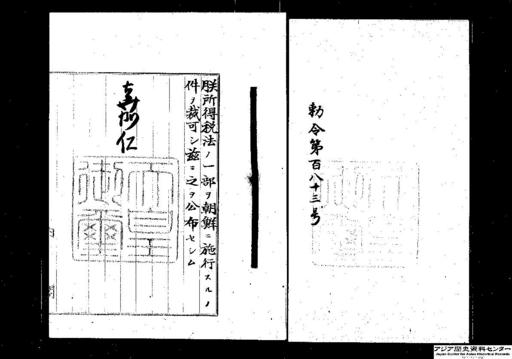 勅令第百八十三号
朕所得税法ノ一部ヲ朝鮮ニ施行スルノ
件ヲ裁可シ茲ニ之ヲ公布セシム
嘉仁
天皇
御璽
内閣
アジア歴史資料センター
Japan Center for Asian Historical Records